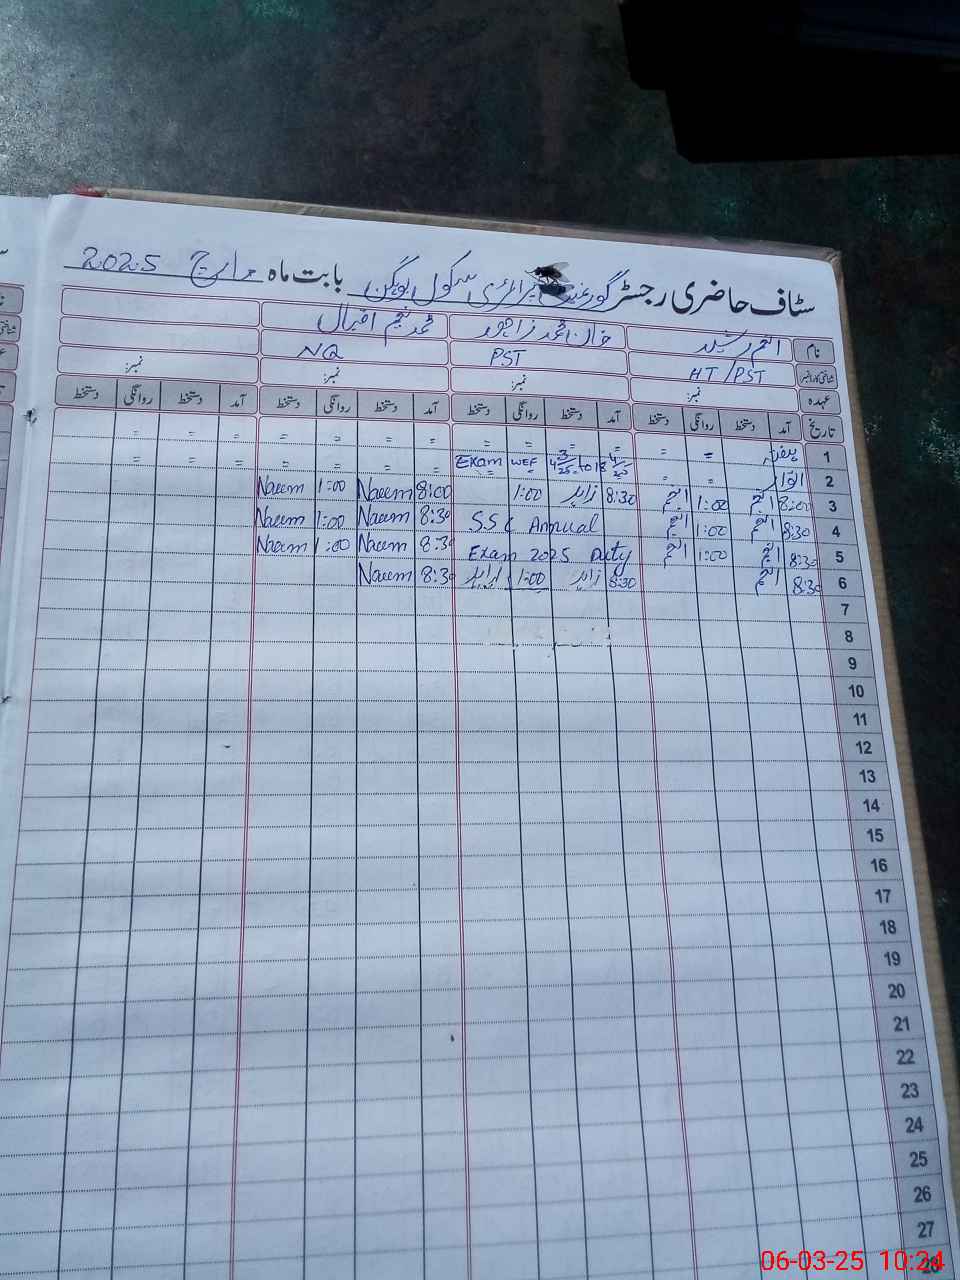 سٹاف حاضری رجسٹر گورنمنٹ پرائمری سکول بابت ماہ مارچ 2025
نام انجم رشید خان محمد زاہد محمد نعیم اقبال
شناختی کارڈ نمبر HT/PST PST NQ
عہدہ نمبر: نمبر: نمبر: نمبر:
تاریخ آمد دستخط روانگی دستخط آمد دستخط روانگی دستخط آمد دستخط روانگی دستخط آمد دستخط روانگی دستخط
1 = = = = = = = = = = = = = =
2 اتوار = = Exam WEF 4/3/25 to 18/4/25 = = = = = = = =
3 8:00 انجم 1:00 انجم 8:30 زاہد 1:00 8:00 Naeem 1:00 Naeem
4 8:30 انجم 1:00 انجم S.S.C Annual 8:30 Naeem 1:00 Naeem
5 8:30 انجم 1:00 انجم Exam 2025 Duty 8:30 Naeem 1:00 Naeem
6 8:30 انجم 8:30 زاہد 1:00 زاہد 8:30 Naeem
7
8
9
10
11
12
13
14
15
16
17
18
19
20
21
22
23
24
25
26
27
28
06-03-25 10:24